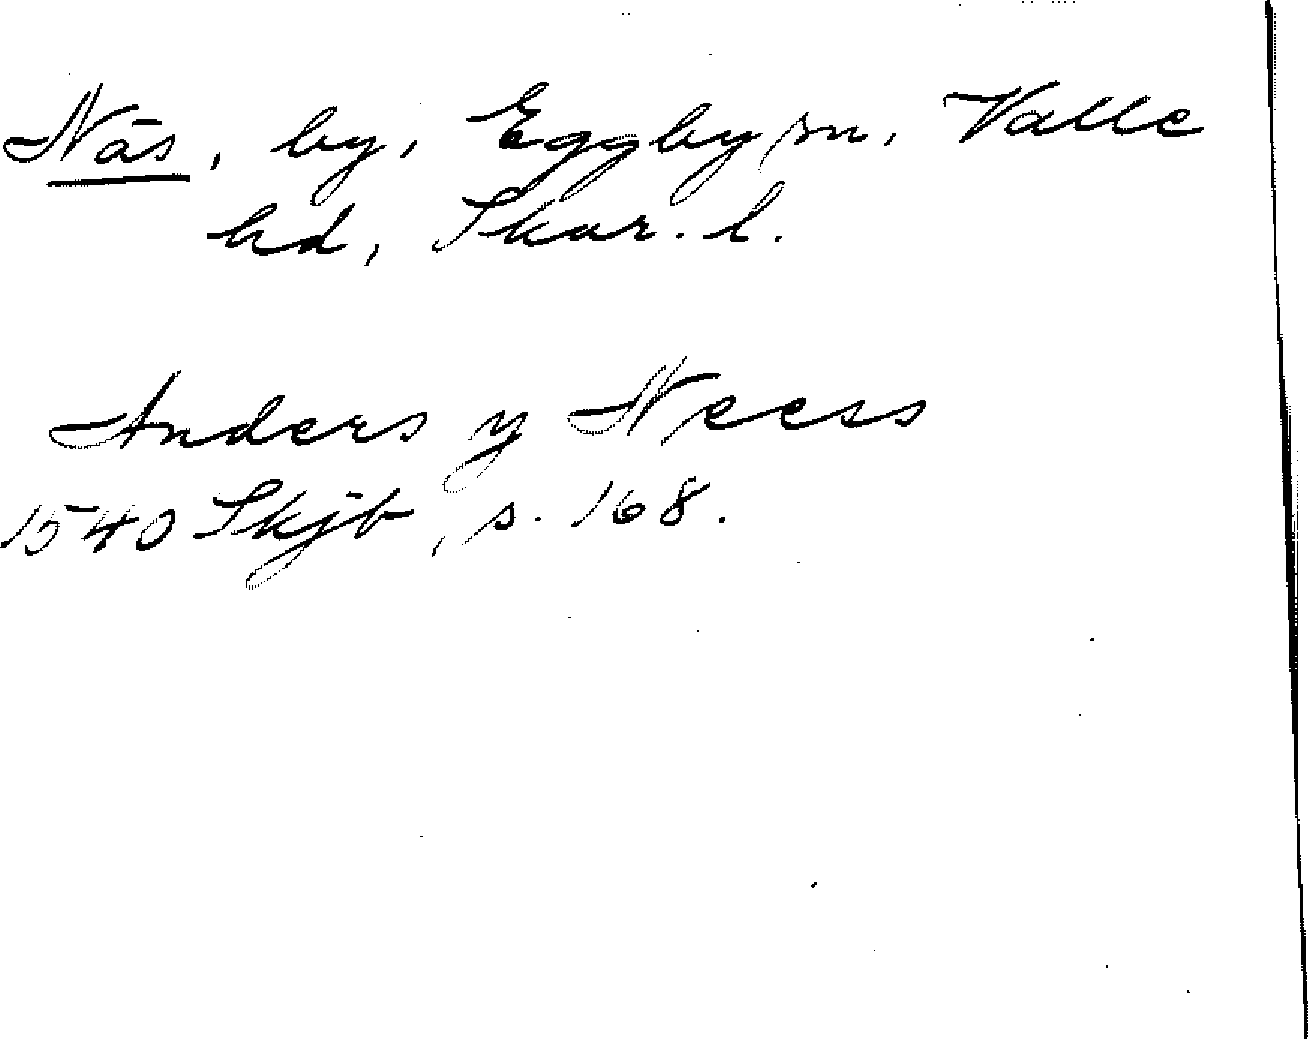 Näs, by, Eggby sn, Valle
hd, Skar. l.
Anders y Neess
1540 Skjb, s. 168.